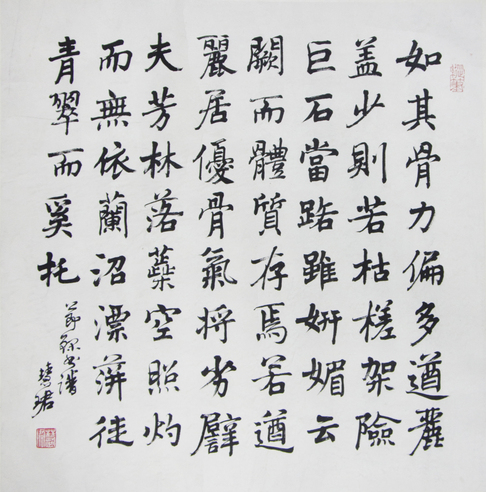 如其骨力偏多遒麗
盖少則若枯槎架險
巨石當路雖妍媚云
闕而體質存焉若遒
麗居優骨氣將劣譬
夫芳林落蘂空照灼
而無依蘭沼漂蓱徒
青翠而奚托
節錄書譜